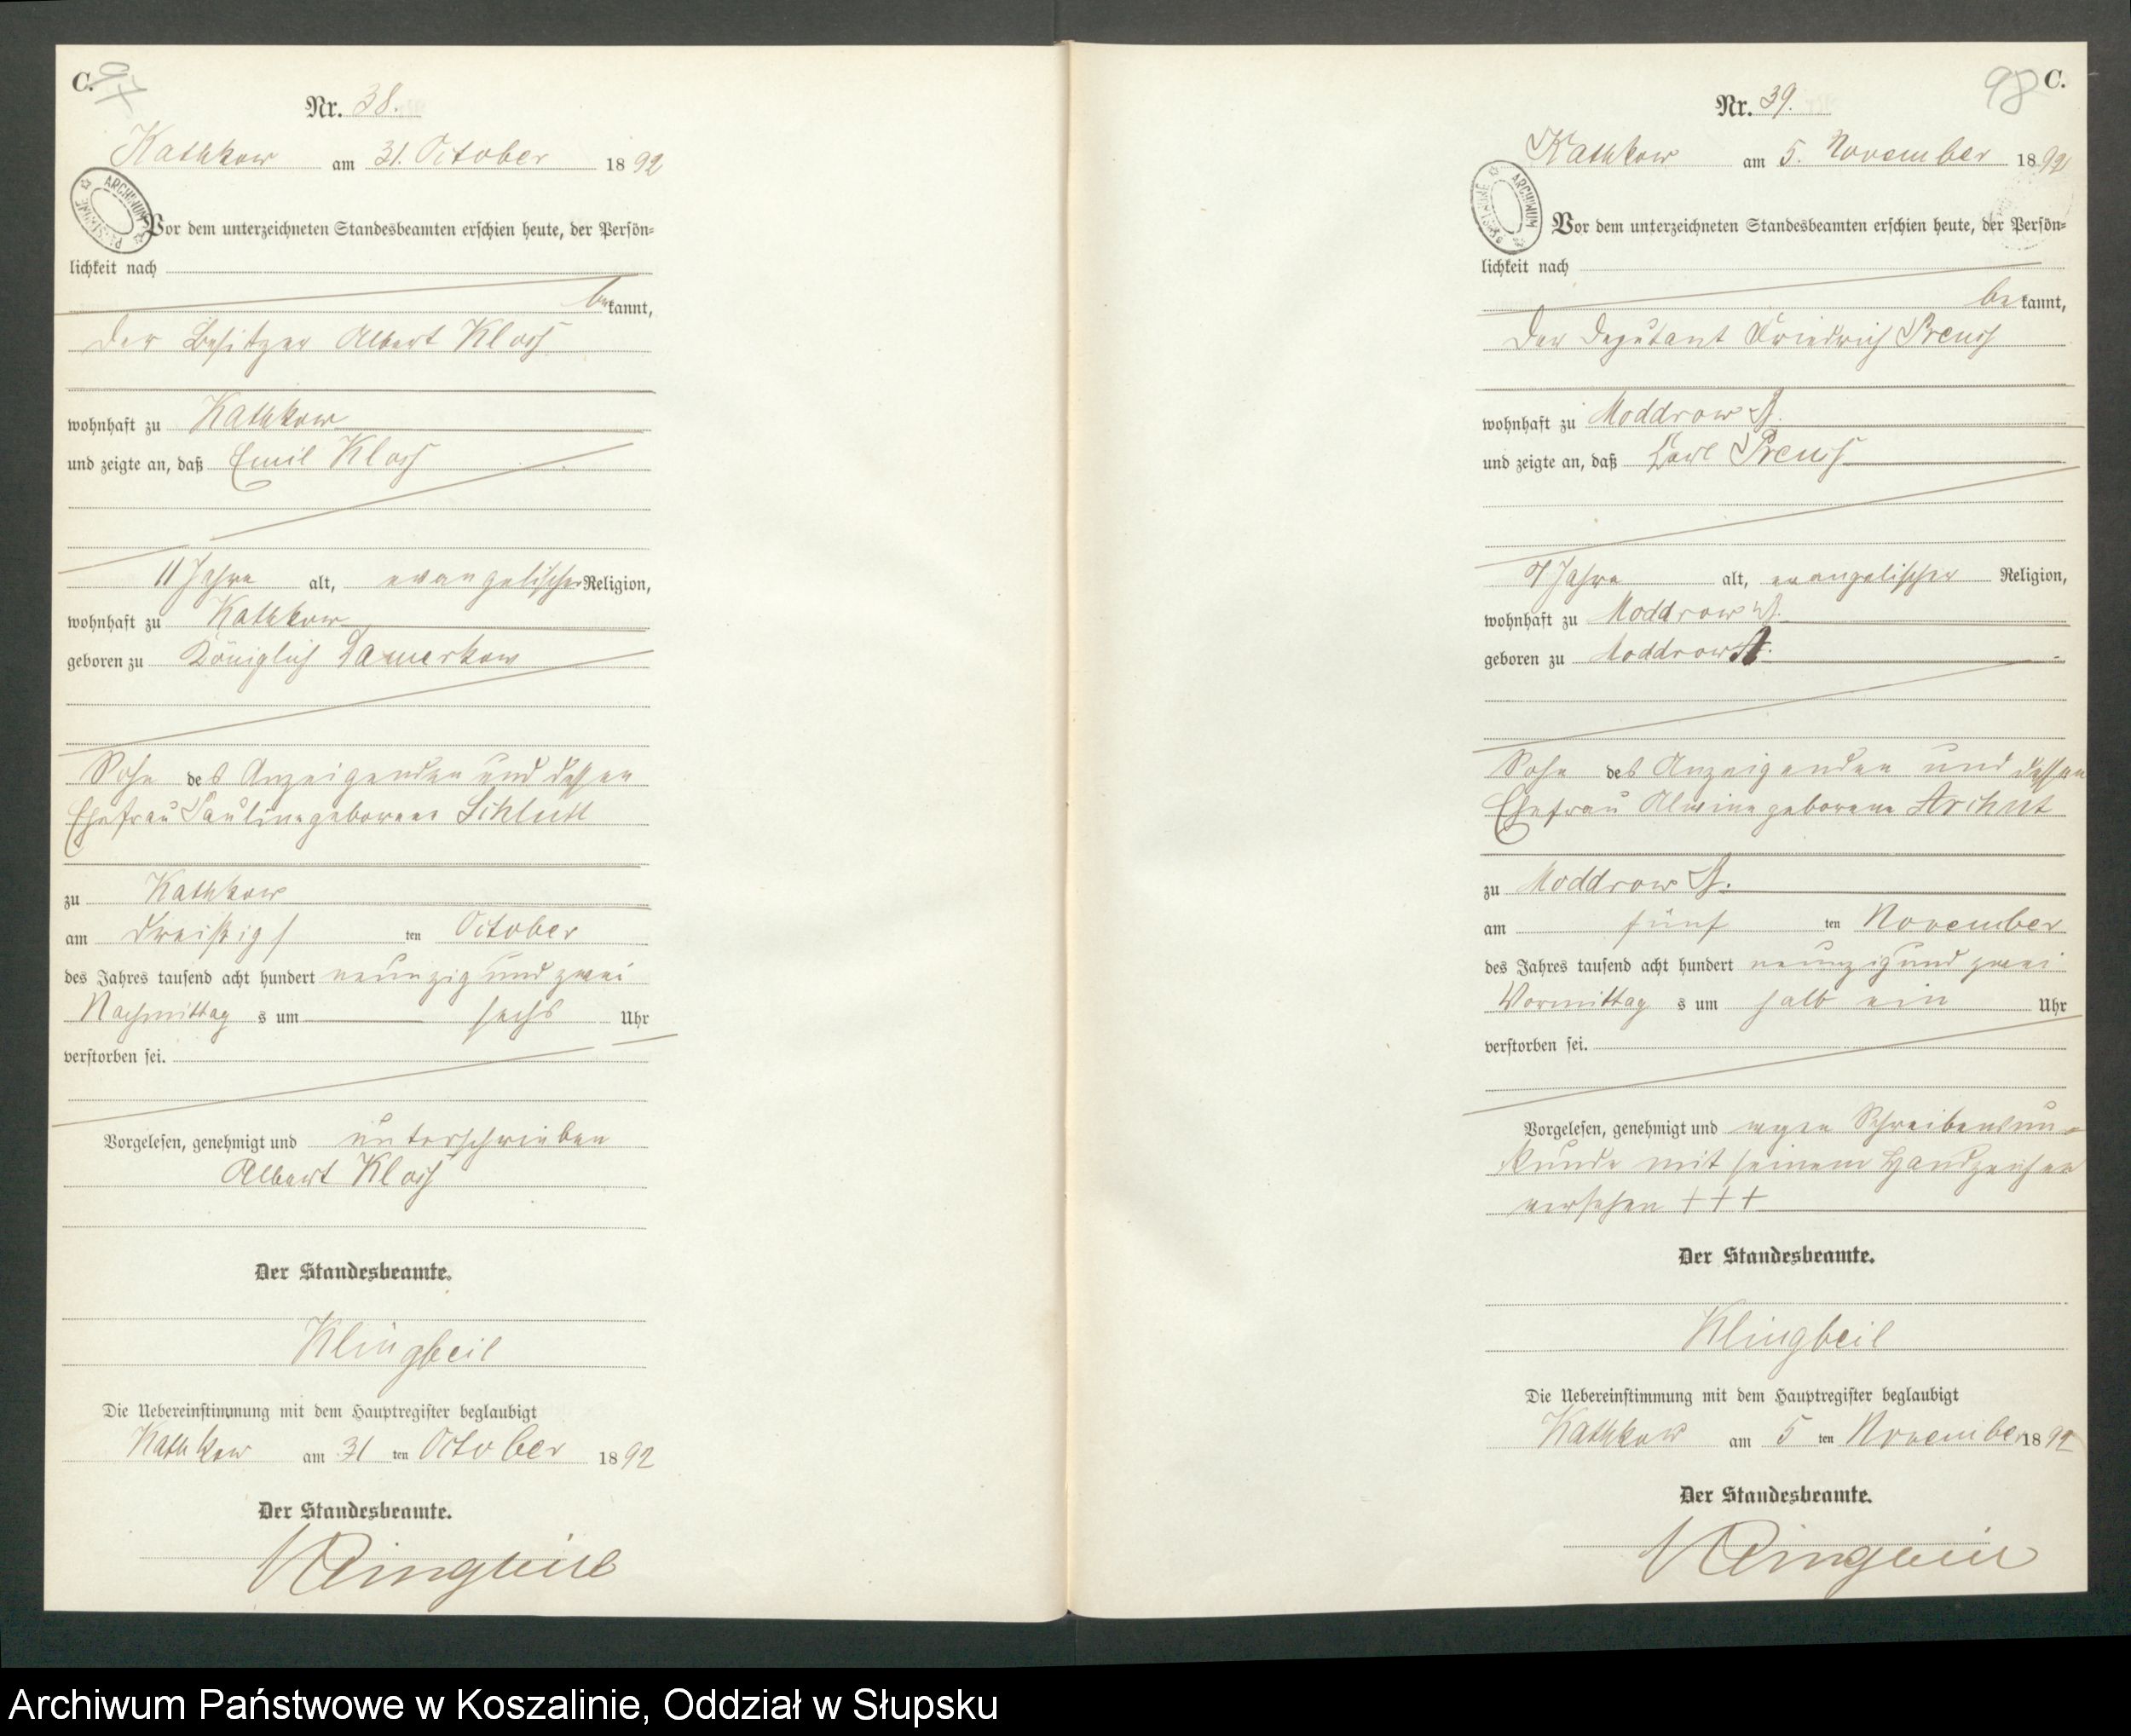 C.
97
Nr. 38.
Kathkow am 31. October 1892
ARCHIWUM
Vor dem unterzeichneten Standesbeamten erschien heute, der Persön-
lichkeit nach
bekannt,
der Besitzer Albert Kloss
wohnhaft zu Kathkow
und zeigte an, daß Emil Kloss
11 Jahre alt, evangelischer Religion,
wohnhaft zu Kathkow
geboren zu Königlich Damerkow
Sohn des Anzeigenden und dessen
Ehefrau Pauline geborene
zu Kathkow
am dreißigsten October
des Jahres tausend acht hundert neunzig und zwei
Nachmittags um sechs Uhr
verstorben sei.
Vorgelesen, genehmigt und unterschrieben
Albert Kloss
Der Standesbeamte.
Klingbeil
Die Uebereinstimmung mit dem Hauptregister beglaubigt
Kathkow am 31 ten October 1892
Der Standesbeamte.
Klingbeil
98 C.
Nr. 39.
Kathkow am 5. November 1892
ARCHIWUM
Vor dem unterzeichneten Standesbeamten erschien heute, der Persön-
lichkeit nach
bekannt,
der Deputant Friedrich Preuss
wohnhaft zu Moddrow A.
und zeigte an, daß Carl Preuss
Jahre alt, evangelischer Religion,
wohnhaft zu Moddrow A.
geboren zu Moddrow A.
Sohn des Anzeigenden und dessen
Ehefrau Alwine geborene
zu Moddrow A.
am fünften November
des Jahres tausend acht hundert neunzig und zwei
Vormittags um halb ein Uhr
verstorben sei.
Vorgelesen, genehmigt und wegen Schreibensun-
kunde mit seinem Handzeichen
versehen +++
Der Standesbeamte.
Klingbeil
Die Uebereinstimmung mit dem Hauptregister beglaubigt
Kathkow am 5 ten November 1892
Der Standesbeamte.
Klingbeil
Archiwum Państwowe w Koszalinie, Oddział w Słupsku